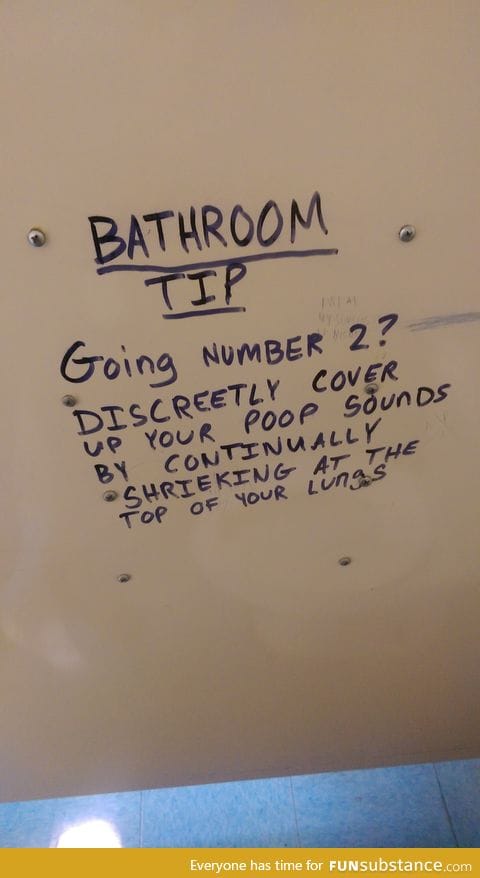 BATHROOM
TIP
Going NUMBER 2?
DISCREETLY COVER
UP YOUR POOP SOUNDS
BY CONTINUALLY
SHRIEKING AT THE
TOP OF YOUR LUNGS
Everyone has time for FUNsubstance.com